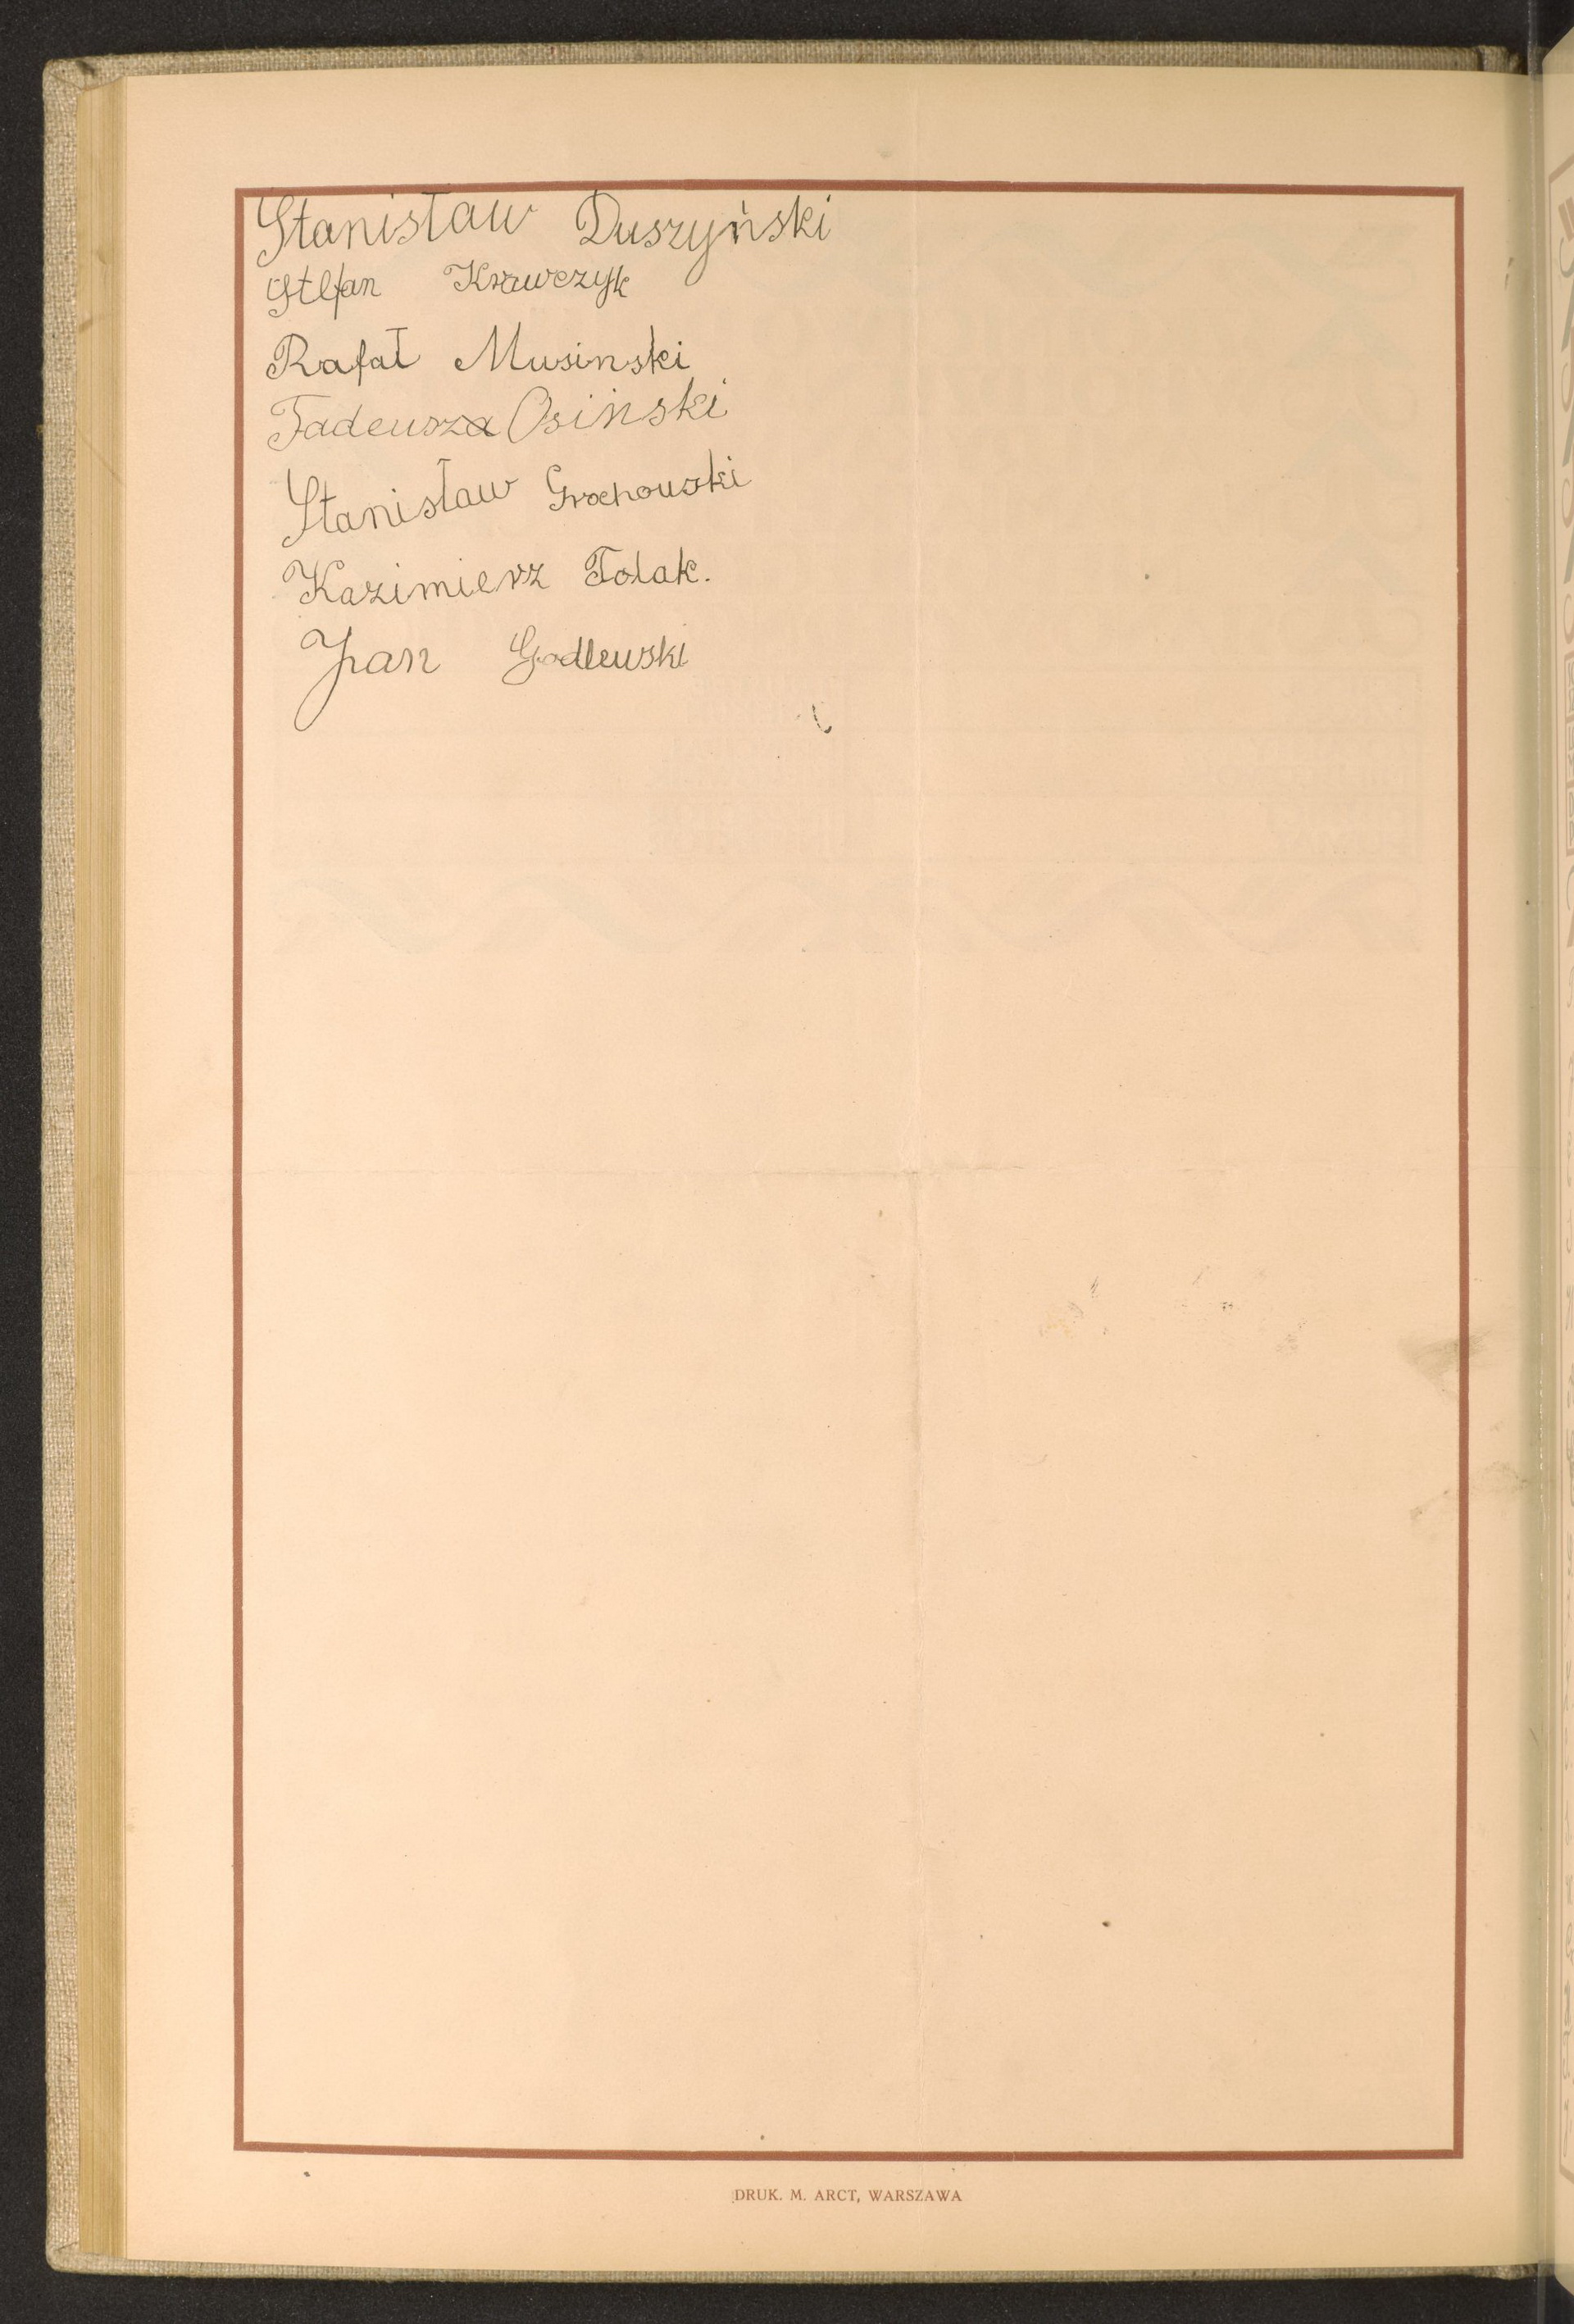 Stanisław Duszyński
Stefan Krawczyk
Rafał Musinski
Tadeusza Osiński
Stanisław Grochowski
Kazimierz Polak.
Jan Godlewski
DRUK. M. ARCT, WARSZAWA